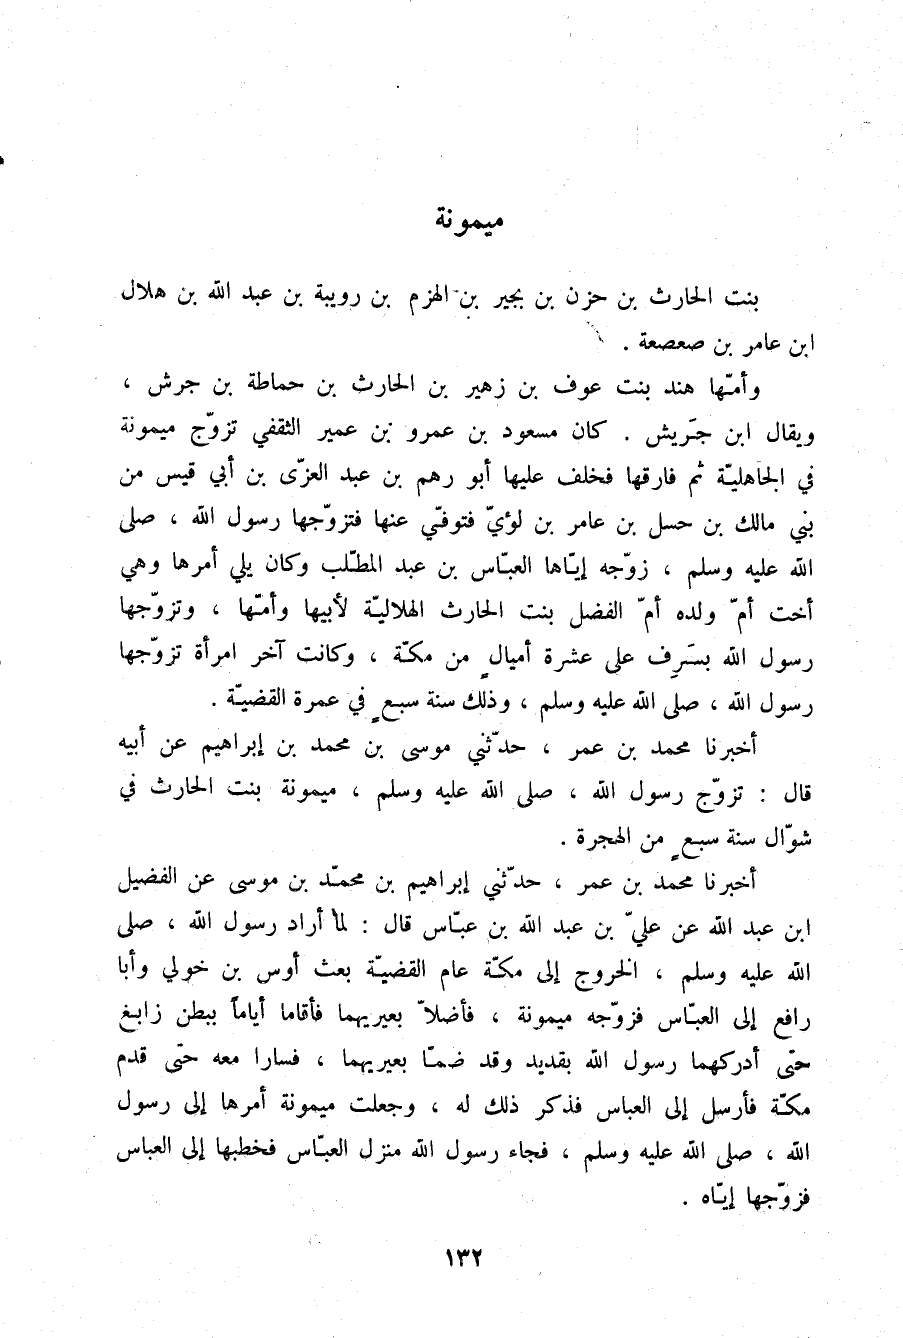 ميمونة
بنت الحارث بن حزن بن بجير بن الهزم بن رويبة بن عبد الله بن هلال
ابن عامر بن صعصعة .
وأمّها هند بنت عوف بن زهير بن الحارث بن حماطة بن جرش ،
ويقال ابن جَريش . كان مسعود بن عمرو بن عمير الثقفي تزوّج ميمونة
في الجاهليّة ثم فارقها فخلف عليها أبو رهم بن عبد العزّى بن أبي قيس من
بني مالك بن حسل بن عامر بن لؤيّ فتوفّي عنها فتزوّجها رسول الله ، صلى
الله عليه وسلم ، زوّجه إيّاها العبّاس بن عبد المطّلب وكان يلي أمرها وهي
أخت أمّ ولده أمّ الفضل بنت الحارث الهلاليّة لأبيها وأمّها ، وتزوّجها
رسول الله بسَرِف على عشرة أميالٍ من مكّة ، وكانت آخر امرأة تزوّجها
رسول الله ، صلى الله عليه وسلم ، وذلك سنة سبعٍ في عمرة القضيّة .
أخبرنا محمد بن عمر ، حدّثني موسى بن محمد بن إبراهيم عن أبيه
قال : تزوّج رسول الله ، صلى الله عليه وسلم ، ميمونة بنت الحارث في
شوّال سنة سبعٍ من الهجرة .
أخبرنا محمد بن عمر ، حدّثني إبراهيم بن محمّد بن موسى عن الفضيل
ابن عبد الله عن عليّ بن عبد الله بن عبّاس قال : لمّا أراد رسول الله ، صلى
الله عليه وسلم ، الخروج إلى مكّة عام القضيّة بعث أوس بن خولي وأبا
رافع إلى العبّاس فزوّجه ميمونة ، فأضلاّ بعيريهما فأقاما أياماً ببطن زابغ
حتّى أدركهما رسول الله بقديد وقد ضمّا بعيريهما ، فسارا معه حتّى قدم
مكّة فأرسل إلى العباس فذكر ذلك له ، وجعلت ميمونة أمرها إلى رسول
الله ، صلى الله عليه وسلم ، فجاء رسول الله منزل العبّاس فخطبها إلى العباس
فزوّجها إيّاه .
١٣٢